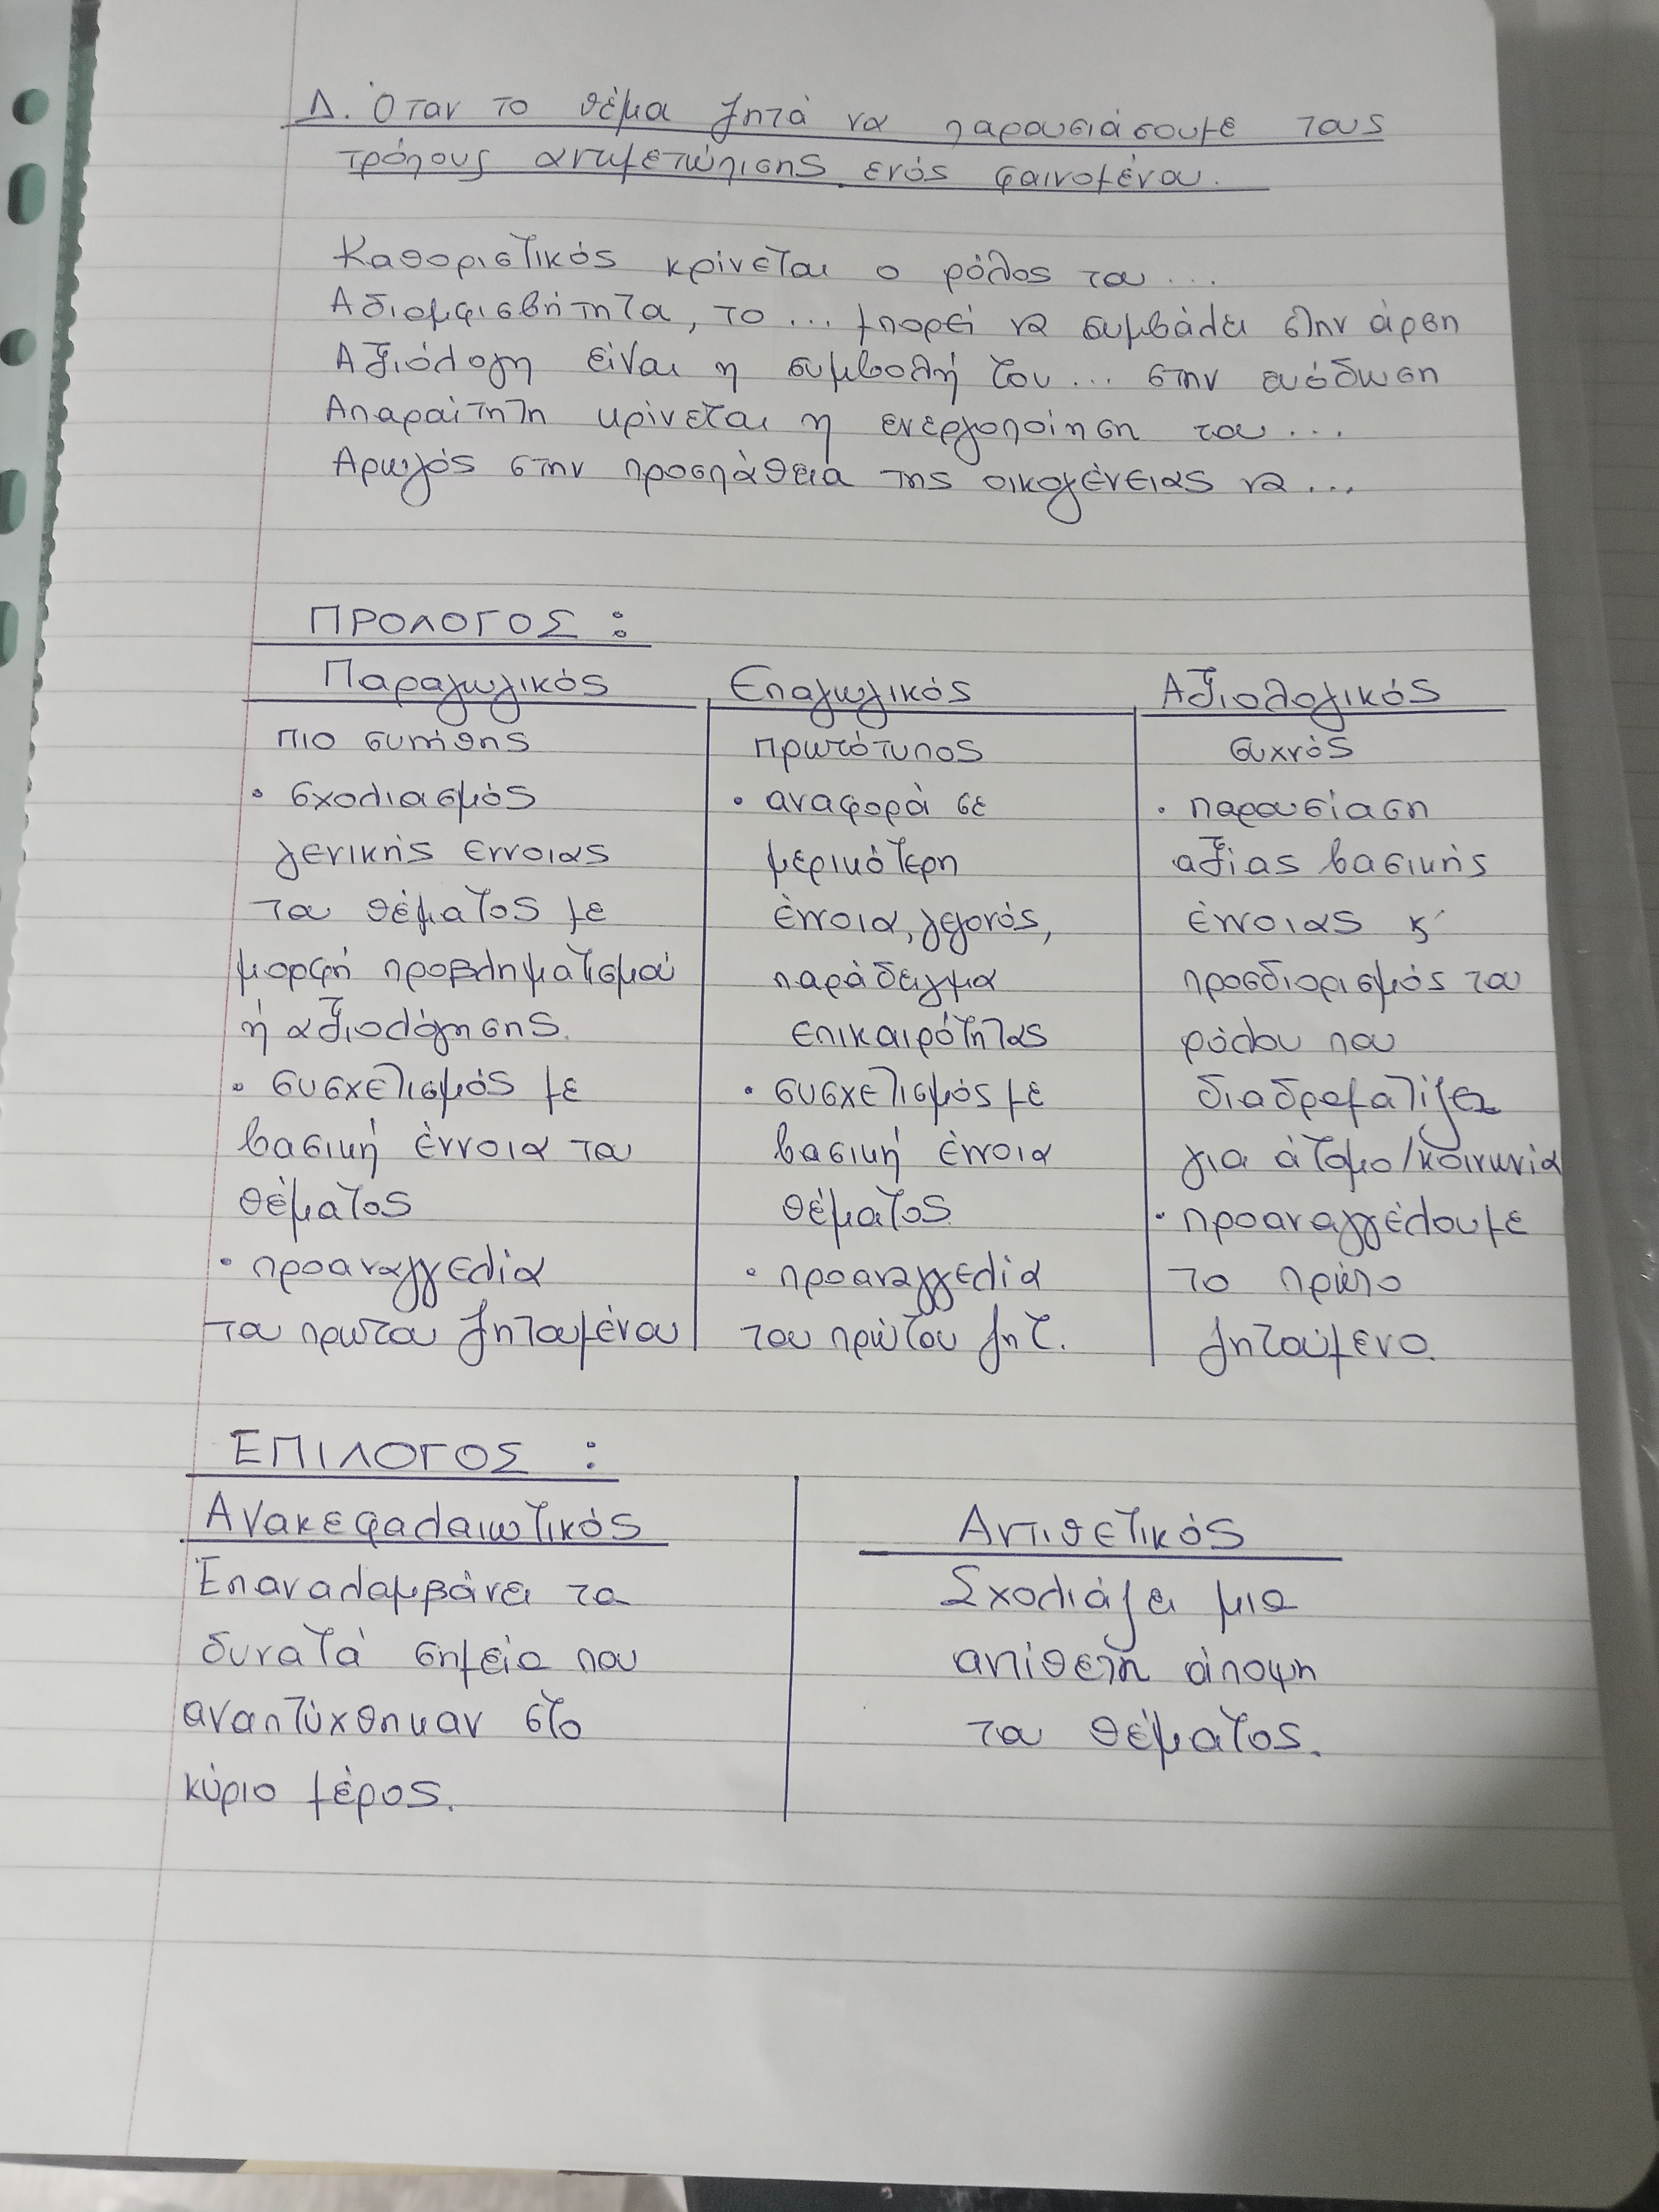 Δ. Όταν το θέμα ζητά να παρουσιάσουμε τους
τρόπους αντιμετώπισης ενός φαινομένου.
Καθοριστικός κρίνεται ο ρόλος του ...
Αδιαμφισβήτητα, το ... μπορεί να συμβάλει στην άρση
Αξιόλογη είναι η συμβολή του ... στην ευόδωση
Απαραίτητη κρίνεται η ενεργοποίηση του ...
Αρωγός στην προσπάθεια της οικογένειας να ...
ΠΡΟΛΟΓΟΣ :
Παραγωγικός
πιο συνήθης
• σχολιασμός
γενικής έννοιας
του θέματος με
μορφή προβληματισμού
ή αξιολόγησης.
• συσχετισμός με
βασική έννοια του
θέματος
• προαναγγελία
του πρώτου ζητουμένου
Επαγωγικός
πρωτότυπος
• αναφορά σε
μερικότερη
έννοια, γεγονός,
παράδειγμα
επικαιρότητας
• συσχετισμός με
βασική έννοια
θέματος
• προαναγγελία
του πρώτου ζητ.
Αξιολογικός
συχνός
• παρουσίαση
αξίας βασικής
έννοιας κ'
προσδιορισμός του
ρόλου που
διαδραματίζει
για άτομο/κοινωνία
• προαναγγέλουμε
το πρώτο
ζητούμενο.
ΕΠΙΛΟΓΟΣ :
Ανακεφαλαιωτικός
Επαναλαμβάνει τα
δυνατά σημεία που
αναπτύχθηκαν στο
κύριο μέρος.
Αντιθετικός
Σχολιάζει μια
αντίθετη άποψη
του θέματος.